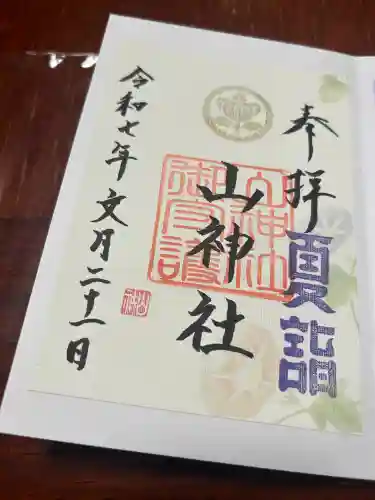 奉拝
夏詣
山神社
山神社
御守護
令和七年 文月二十一日